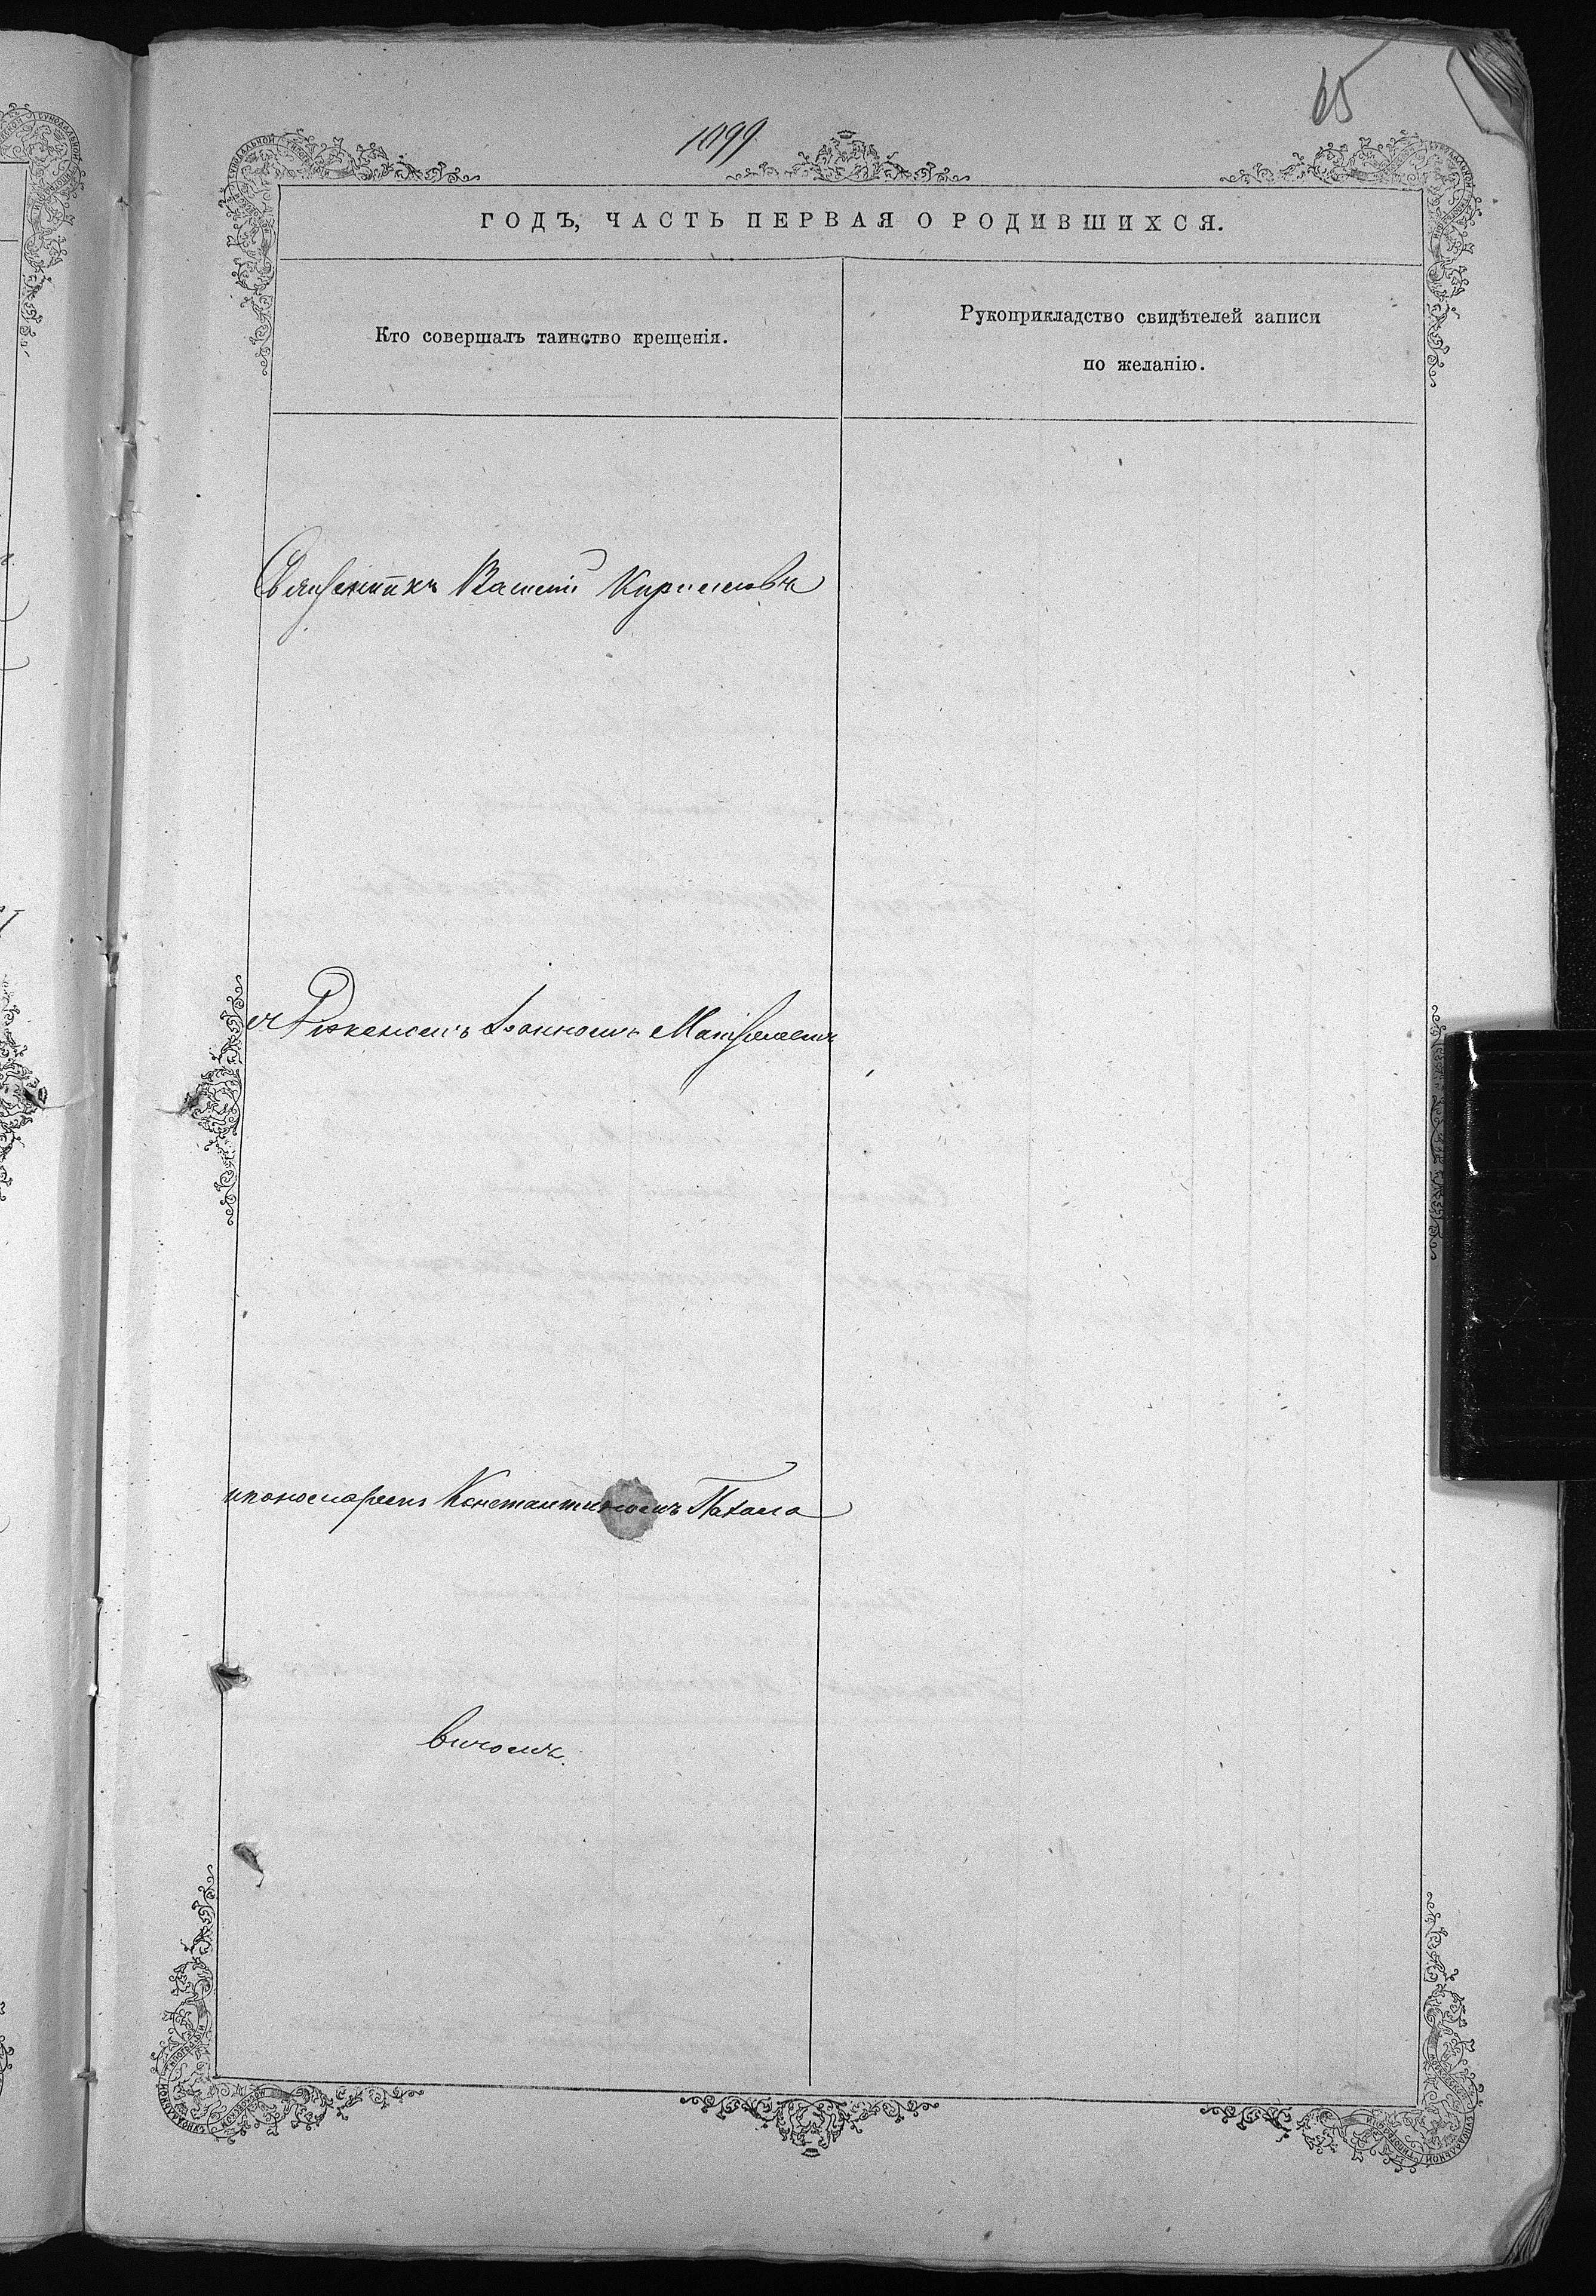 65
1899
ГОДЪ, ЧАСТЬ ПЕРВАЯ О РОДИВШИХСЯ.
Кто совершалъ таинство крещенія.
Рукоприкладство свидѣтелей записи
по желанію.
Священникъ Василій Кирилловъ
съ Діакономъ Іоанномъ
и пономаремъ Константиномъ Пахало
вичомъ.